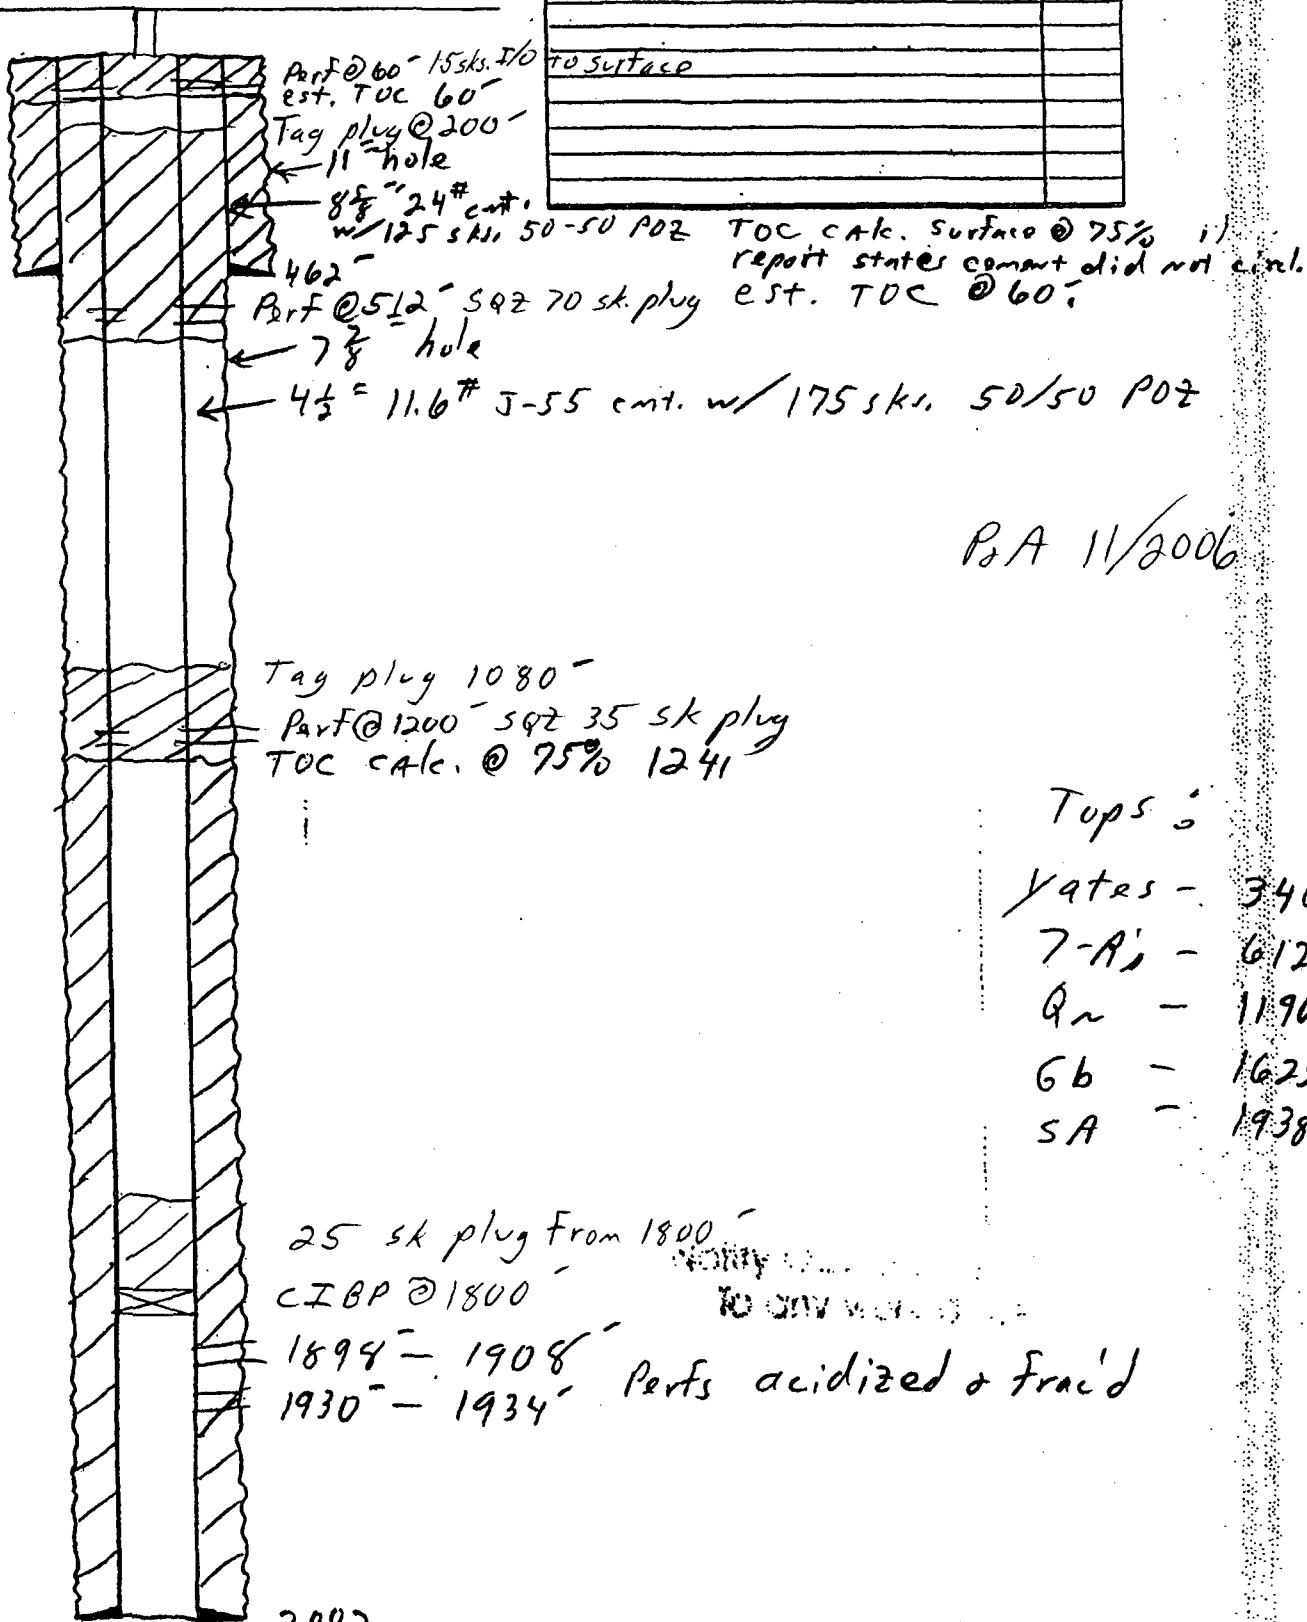 Perf @ 60' 15 sks. I/O to surface
est. TOC 60'
Tag plug @ 200'
11" hole
8 5/8" 24# cmt.
w/ 125 sks. 50-50 POZ TOC CAlc. Surface @ 75%
report states cement did not circl.
462'
est. TOC @ 60'
Perf @ 512' SQZ 70 sk. plug
7 7/8" hole
4 1/2" 11.6# J-55 cmt. w/ 175 sks. 50/50 POZ
P&A 11/2006
Tag plug 1080'
Perf @ 1200' SQZ 35 sk plug
TOC CAlc. @ 75% 1241
Tops:
Yates - 340
7-R's - 612
Qn - 1190
Gb - 1625
SA - 1938
25 sk plug from 1800'
Notify
To any
CIBP @ 1800'
1898' - 1908'
1930' - 1934' Perfs acidized & frac'd